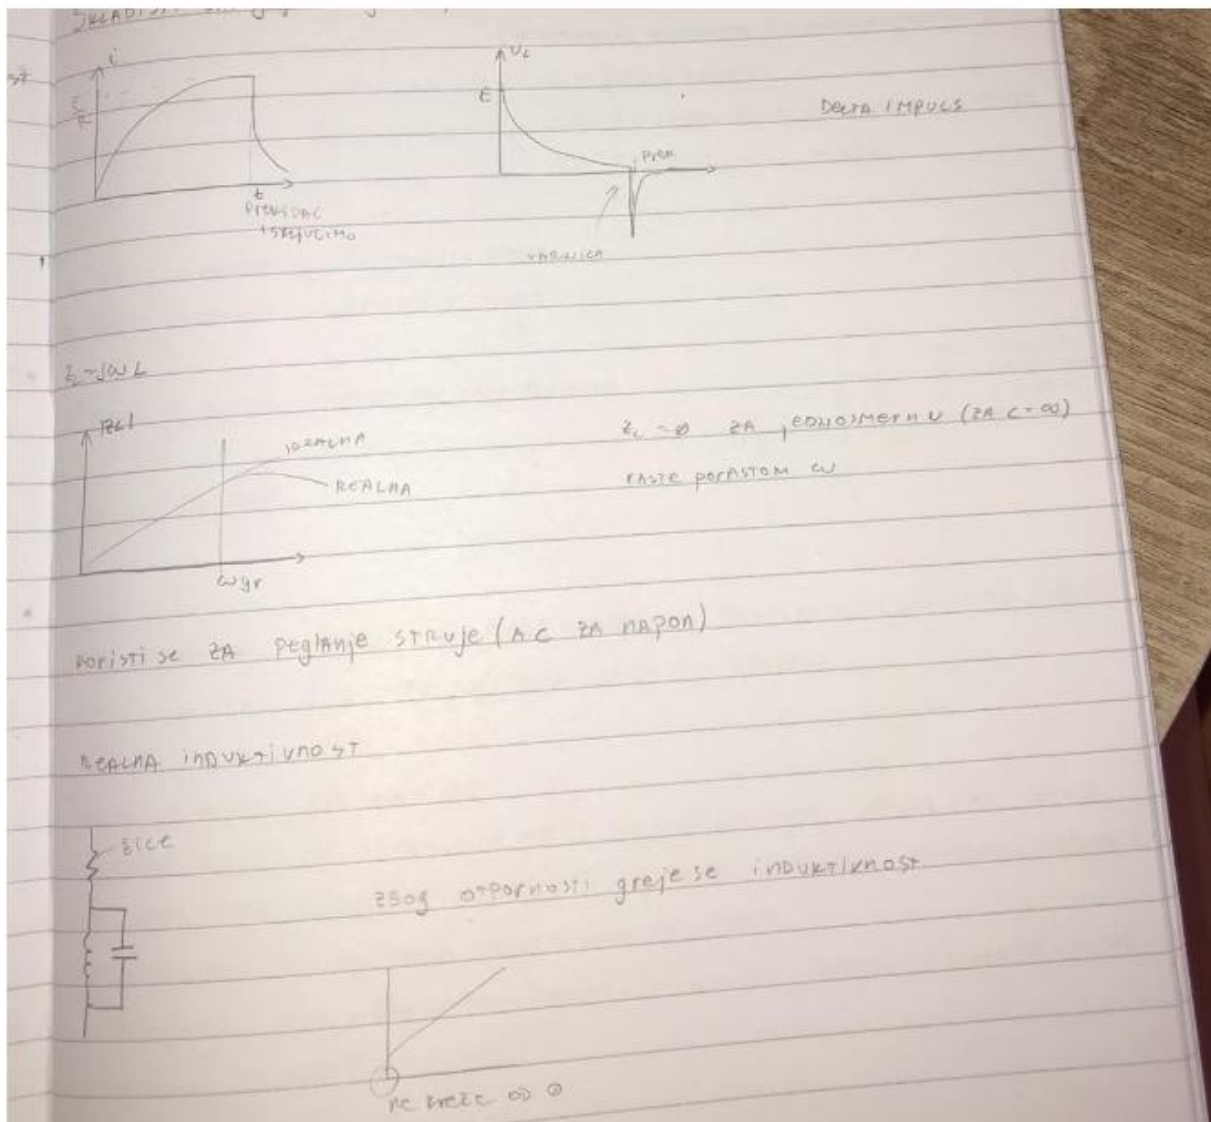 i
E/R
t
PREKIDAC
ISKLJUCIMO
VL
E
PREK
VARNICA
DELTA IMPULS
Z=JWL
|ZL|
IDEALNA
REALNA
ωgr
ZL = 0 ZA jEDNOSMERNU (ZA C = ∞)
RASTE PORASTOM ω
KORISTI SE ZA PEGLANjE STRUjE (A C ZA NAPON)
REALNA INDUKTIVNOST
ŽICE
ZBOG OTPORNOSTI GREJE SE INDUKTIVNOST
NE KREĆE OD 0